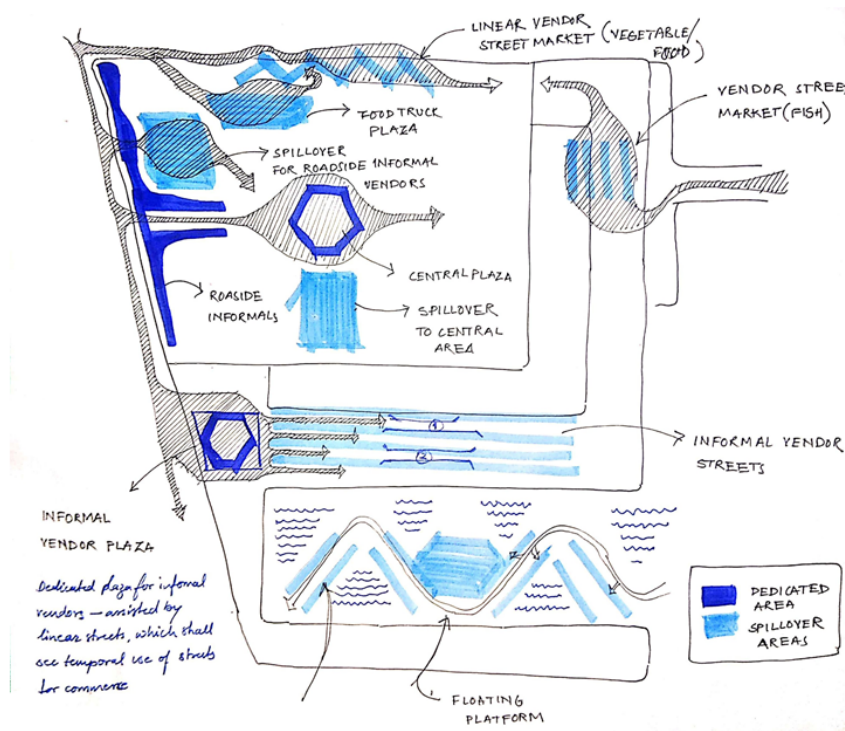 LINEAR VENDOR
STREET MARKET (VEGETABLE/
FOOD)
VENDOR STREET
MARKET (FISH)
FOOD TRUCK
PLAZA
SPILLOVER
FOR ROADSIDE INFORMAL
VENDORS
CENTRAL PLAZA
ROASIDE
INFORMALS
SPILLOVER
TO CENTRAL
AREA
1
2
INFORMAL VENDOR
STREETS
INFORMAL
VENDOR PLAZA
Dedicated plaza for infomal
vendors — assisted by
linear streets, which shall
see temporal use of streets
for commerce
FLOATING
PLATFORM
DEDICATED
AREA
SPILLOVER
AREAS